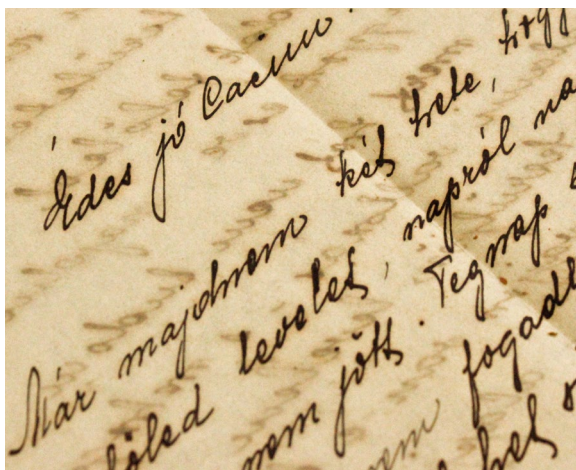 Édes jó Cacim
Már majdnem két hete, hogy
leveled, napról na
nem jött. Tegnap
fogad
het